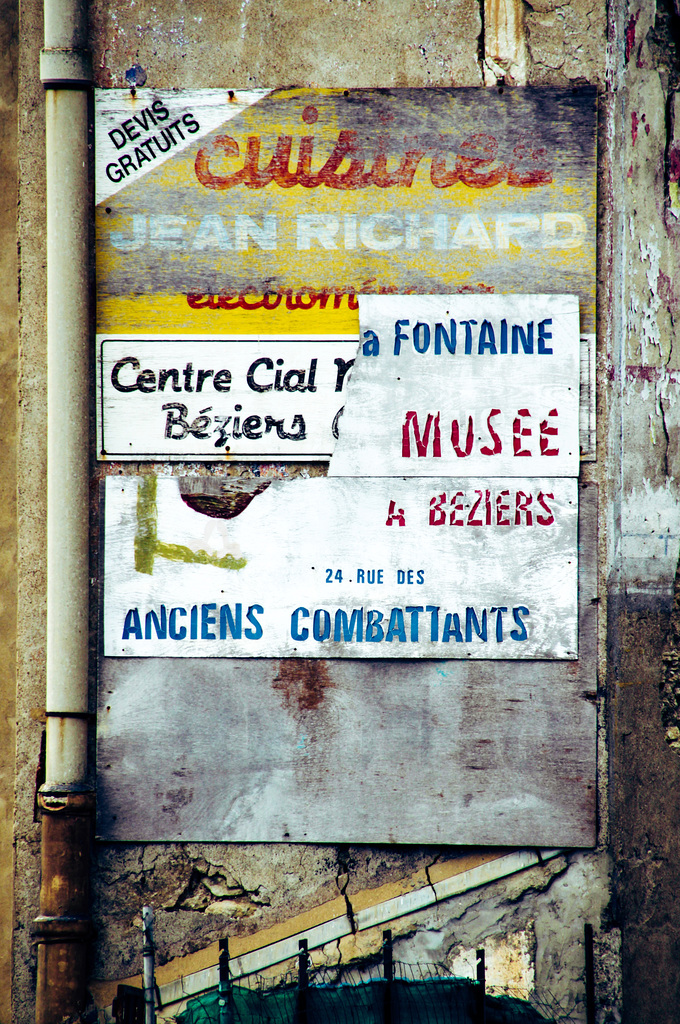 DEVIS
GRATUITS
cuisines
JEAN RICHARD
Centre Cial
Béziers
a FONTAINE
MUSEE
A BEZIERS
24. RUE DES
ANCIENS COMBATTANTS